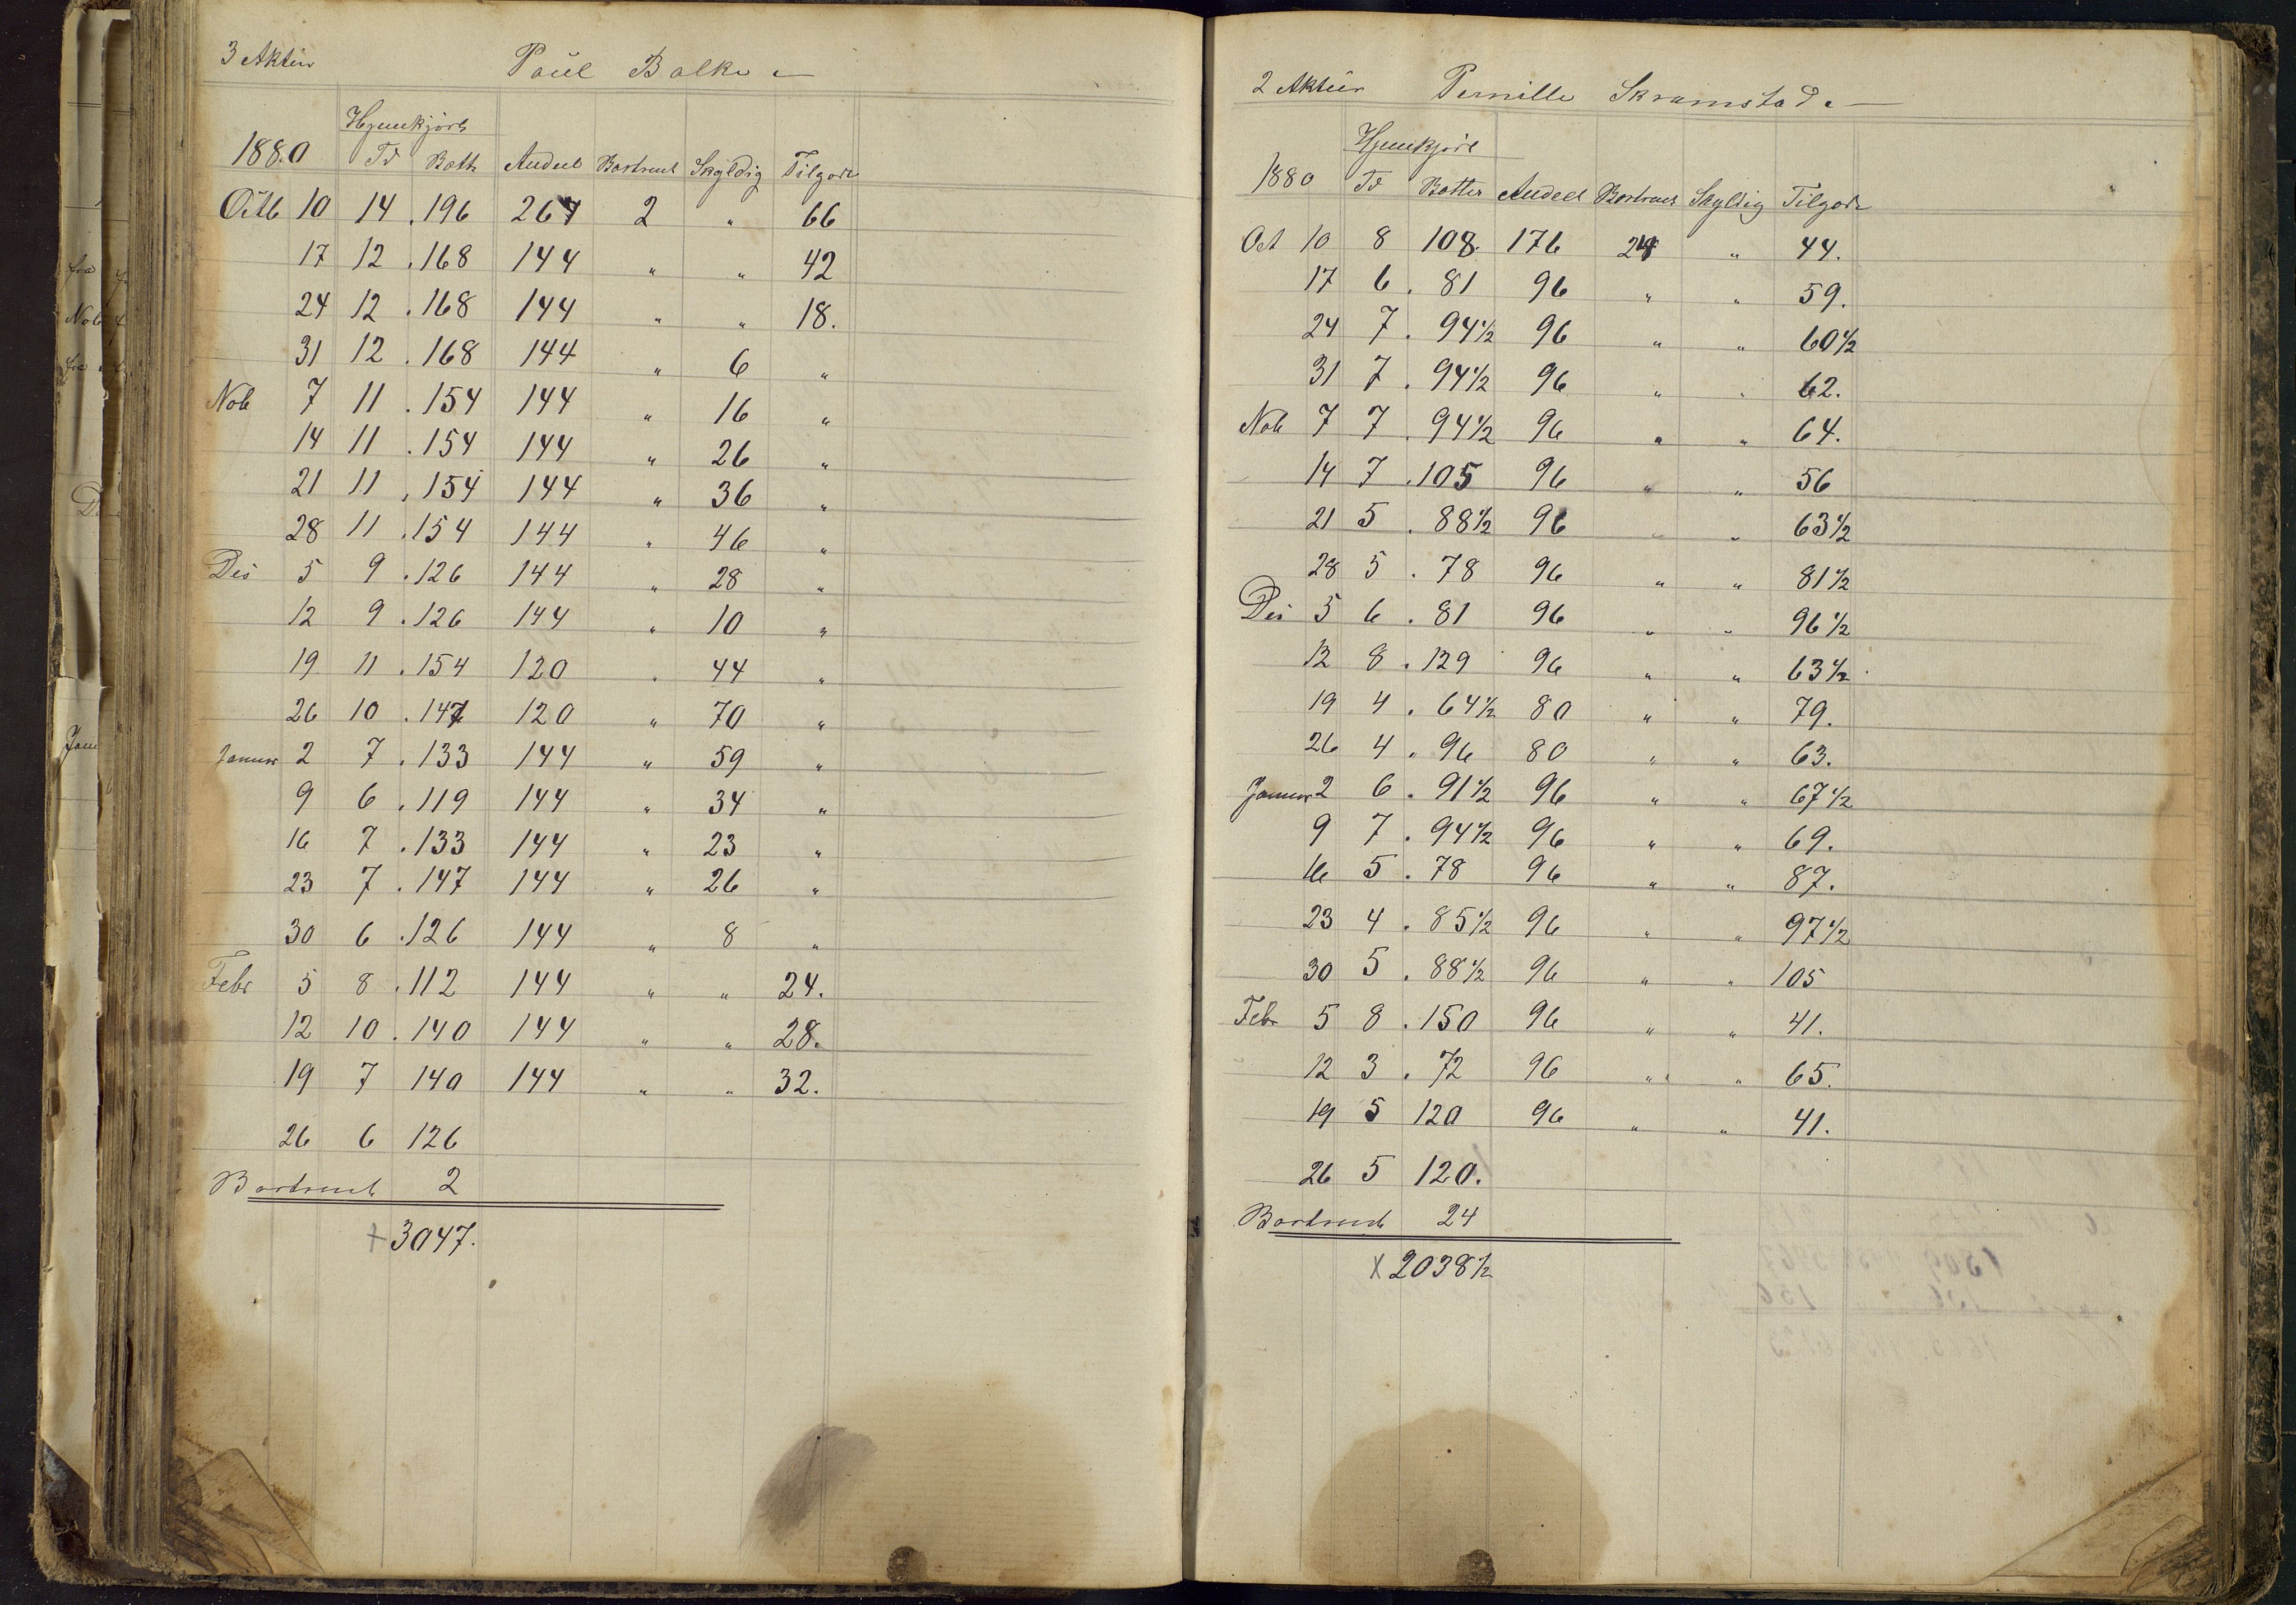 3 Aktier Paul Balke
Hjemkjørt
1880 Td Bøtt Andeel Bortrent Skyldig Tilgode
Octb 10 14 . 196 264 2 " 66
17 12 . 168 144 " " 42
24 12 . 168 144 " " 18.
31 12 . 168 144 " 6 "
Nob 7 11 . 154 144 " 16 "
14 11 . 154 144 " 26 "
21 11 . 154 144 " 36 "
28 11 . 154 144 " 46 "
Des 5 9 . 126 144 " 28 "
12 9 . 126 144 " 10 "
19 11 . 154 120 " 44 "
26 10 . 147 120 " 70 "
Januar 2 7 . 133 144 " 59 "
9 6 . 119 144 " 34 "
16 7 . 133 144 " 23 "
23 7 . 147 144 " 26 "
30 6 . 126 144 " 8 "
Febr 5 8 . 112 144 " " 24.
12 10 . 140 144 " " 28.
19 7 140 144 " " 32.
26 6 126
Bortrent 2
+ 3047.
2 Aktier Pernille Skramstad
Hjemkjört
1880 Td Bøtter Andeel Bortrent Skyldig Tilgode
Oct 10 8 108. 176 24 " 44.
17 6 . 81 96 " " 59.
24 7 . 94 1/2 96 " " 60 1/2
31 7 . 94 1/2 96 " " 62.
Nob 7 7 . 94 1/2 96 " " 64.
14 7 . 105 96 " " 56
21 5 . 88 1/2 96 " " 63 1/2
28 5 . 78 96 " " 81 1/2
Des 5 6 . 81 96 " " 96 1/2
12 8 . 129 96 " " 63 1/2
19 4 . 64 1/2 80 " " 79.
26 4 . 96 80 " " 63.
Januar 2 6 . 91 1/2 96 " " 67 1/2
9 7 . 94 1/2 96 " " 69.
16 5 . 78 96 " " 87.
23 4 . 85 1/2 96 " " 97 1/2
30 5 . 88 1/2 96 " " 105
Febr 5 8 . 150 96 " " 41.
12 3 . 72 96 " " 65.
19 5 120 96 " " 41.
26 5 120.
Bortrent 24
x 2038 1/2